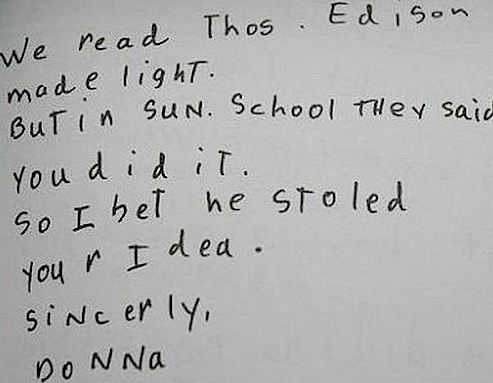 We read Thos. Edison
made light.
But in SUN. School They said
you did iT.
So I bet he sToled
your Idea.
SiNcerly,
DoNNa